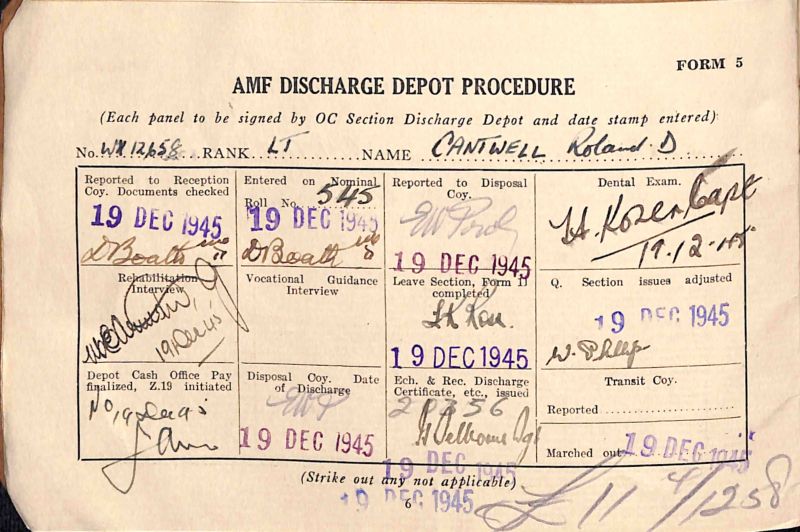 FORM 5
AMF DISCHARGE DEPOT PROCEDURE
(Each panel to be signed by OC Section Discharge Depot and date stamp entered)
No. WX12658 RANK LT NAME CANTWELL Roland D
Reported to Reception
Coy. Documents checked
19 DEC 1945
D Boath
Entered on Nominal
Roll No. 545
19 DEC 1945
D Boath
Reported to Disposal
Coy.
19 DEC 1945
Dental Exam.
Capt
19.12.45
Rehabilitation
Interview
19 Dec 45
Vocational Guidance
Interview
Leave Section, Form 11
completed
19 DEC 1945
Q. Section issues adjusted
19 DEC 1945
W. Phillip
Depot Cash Office Pay
finalized, Z.19 initiated
No
19 Dec 45
Disposal Coy. Date
of Discharge
19 DEC 1945
Ech. & Rec. Discharge
Certificate, etc., issued
20356
Sgt
19 DEC 1945
Transit Coy.
Reported
Marched out 19 DEC 1945
(Strike out any not applicable)
6
19 DEC 1945